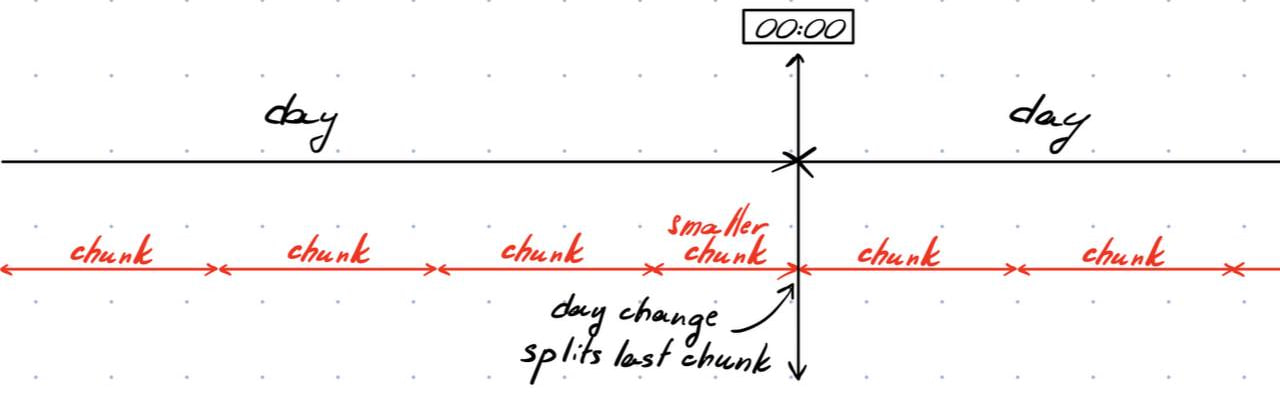 00:00
day
day
smaller
chunk
chunk
chunk
chunk
chunk
chunk
day change
splits last chunk